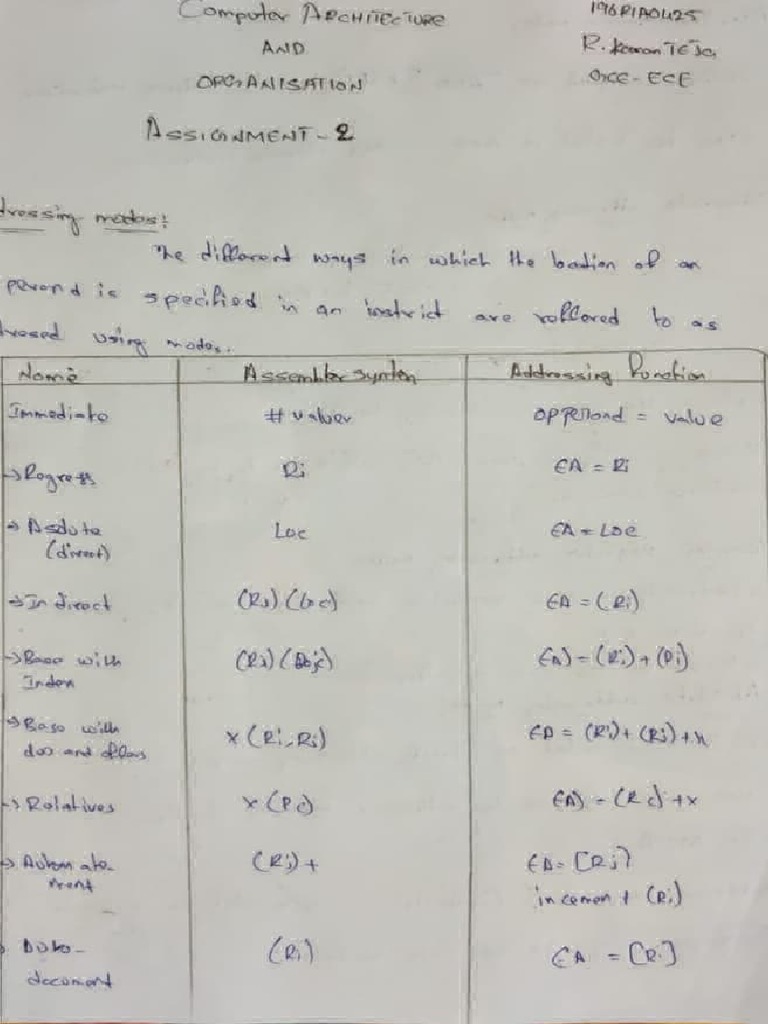 Computer ARCHITECTURE
AND
ORGANISATION
196P1A0425
R. Kavan TEJa
ECE
ASSIGNMENT - 2
dressing modes:
The different ways in which the location of an
perand is specified in an instrict are reffered to as
dressed using modes.
Name | Assembler Synten | Addressing Function
Immediate | # value | opperand = value
→ Regress | Ri | EA = Ri
→ Asolute (direct) | Loc | EA = Loc
→ In direct | (Ri) (Loc) | EA = (Ri)
→ Base with Inden | (Ri) | EA) = (Ri) + (Ri)
→ Base with and | x (Ri, Rj) | EA = (Ri) + (Rj) + x
→ Relatives | x (Pc) | EA) = (Rc) + x
→ Autom ate- ment | (Ri) + | EA = [Ri]
incemen t (Ri)
document | (Ri) | EA = [Ri]